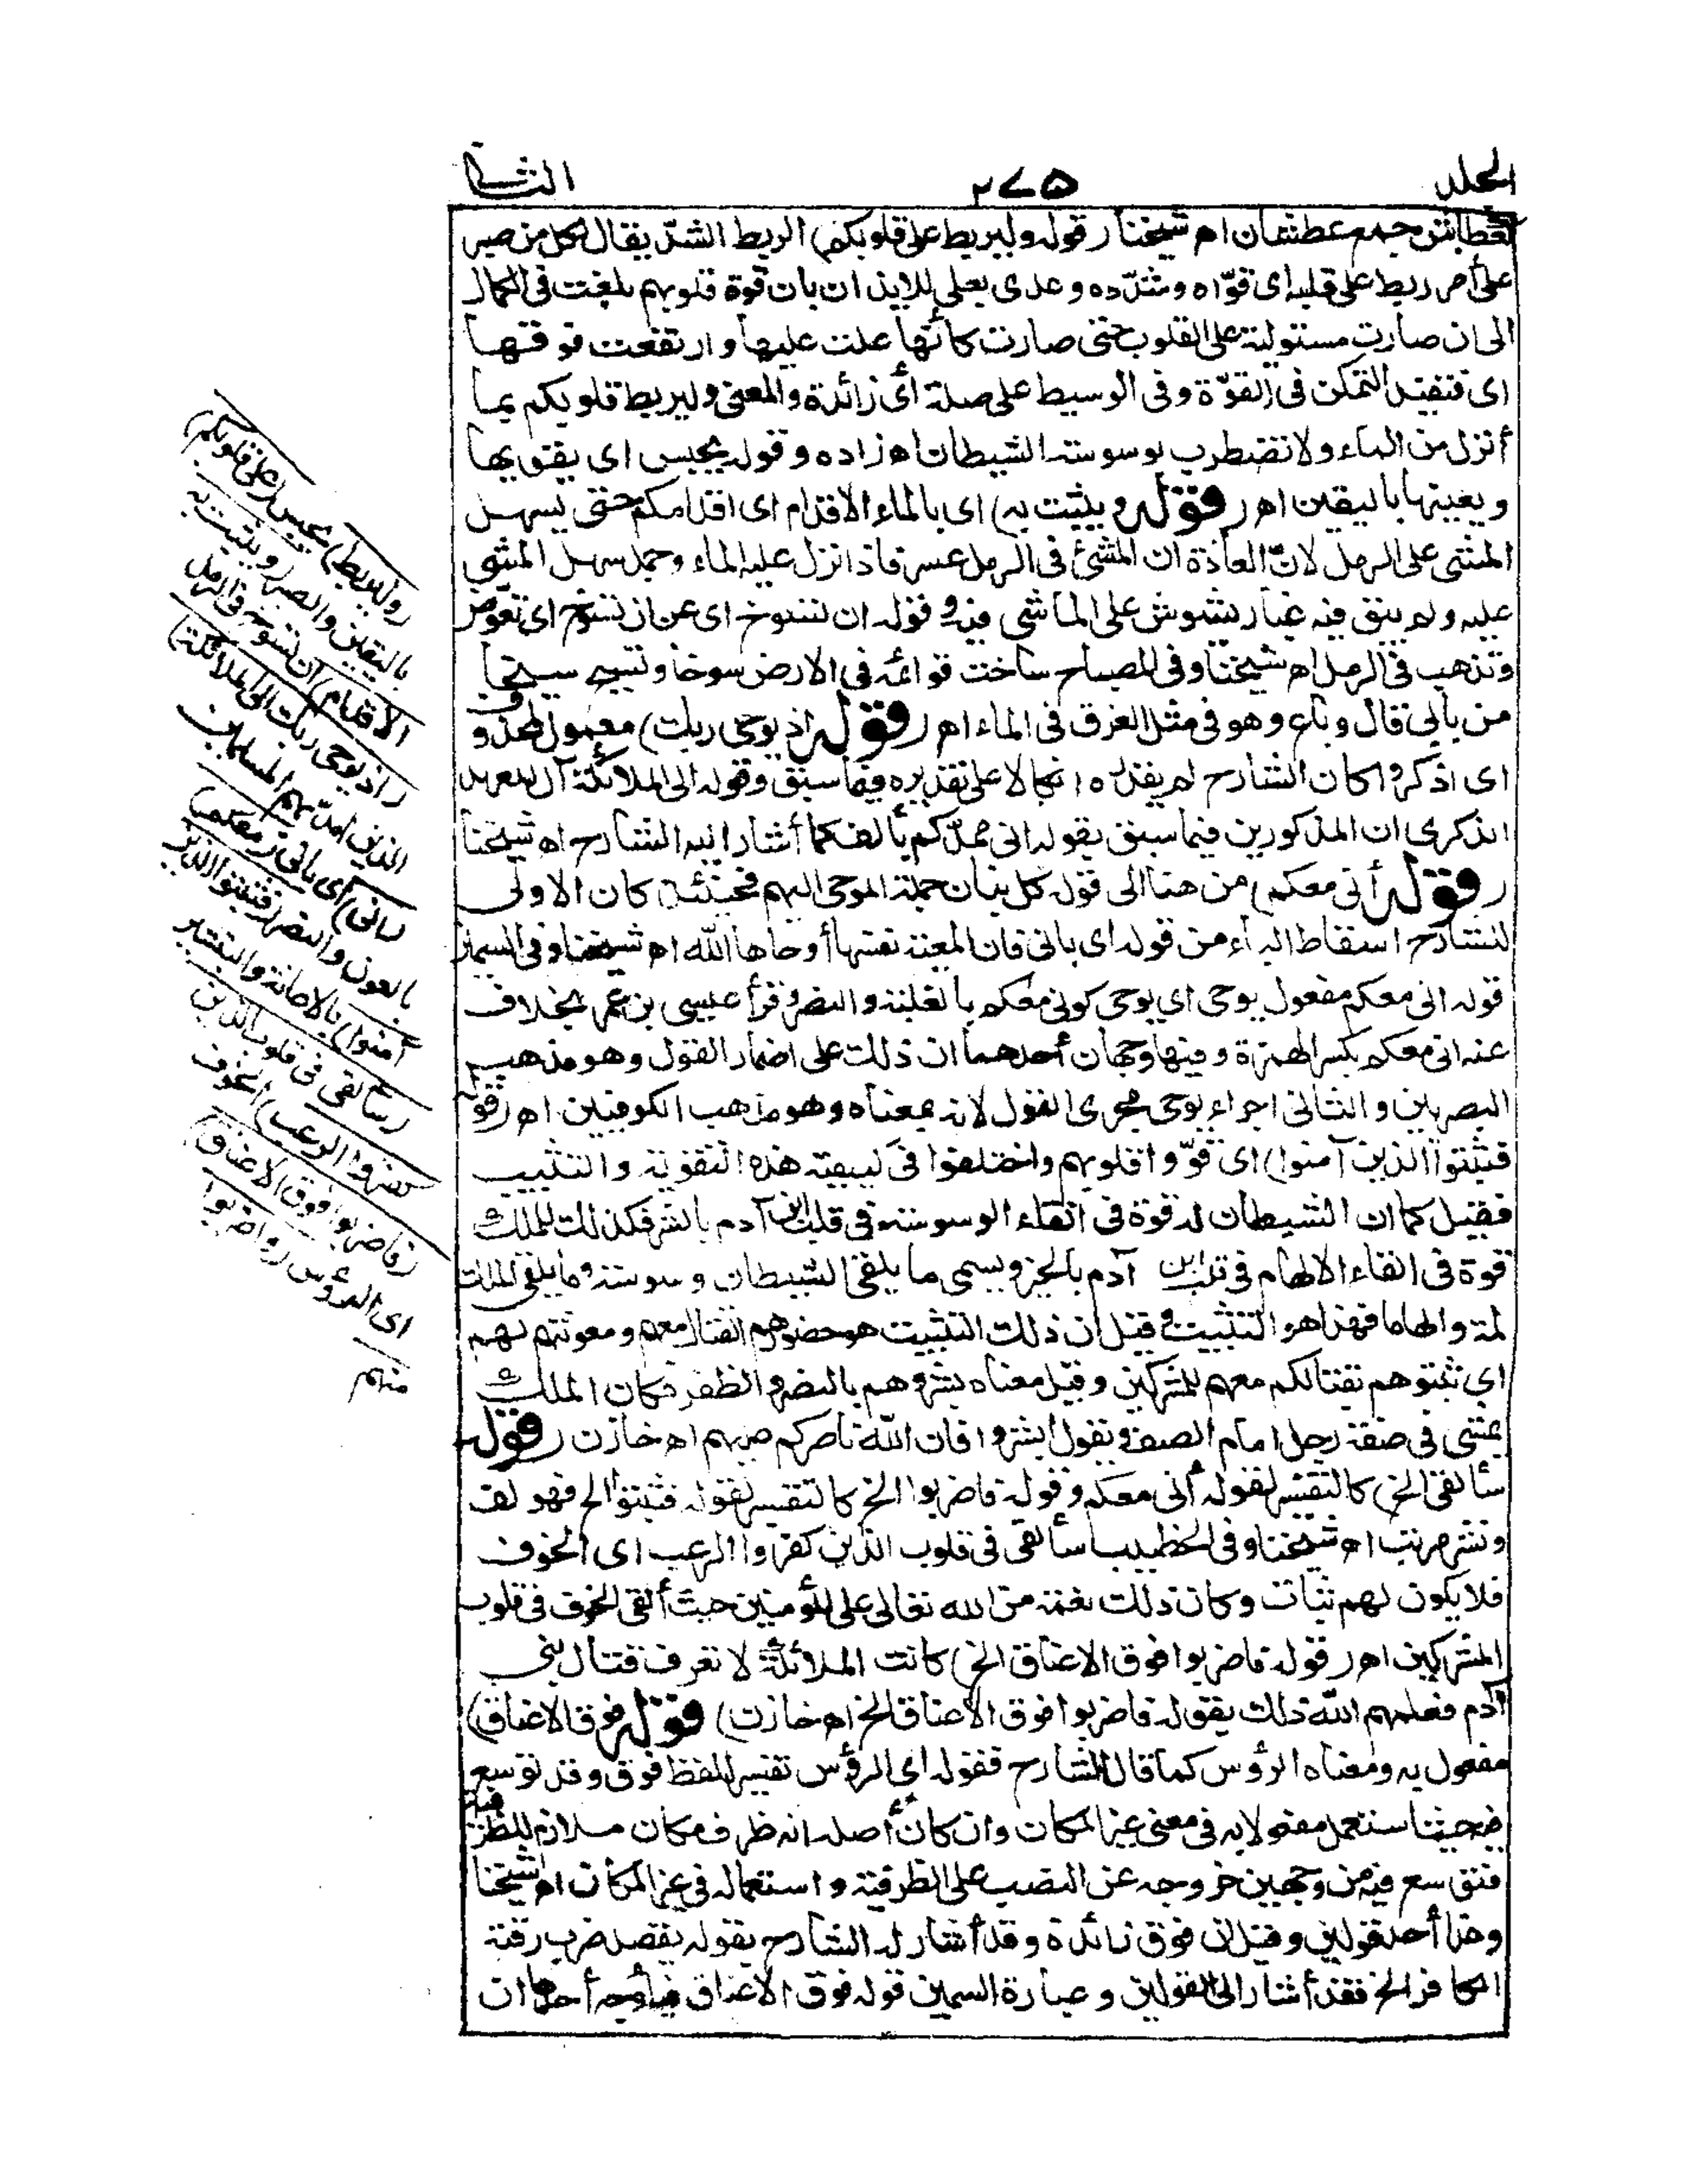 الجلد ٢٧٥ الثانى
لعطاش جمع عطشان اه شيخنا (قوله وليربط على قلوبكم) الربط الشدّ يقال لكل من صبر
على أمر ربط على قلبه اى قوّاه وشدّده وعدى بعلى للايذان بان قوة قلوبهم بلغت فى الكمال
الى ان صارت مستولية على القلوب حتى صارت كأنها علت عليها وارتفعت فوقها
اى فتفيد التمكن فى القوّة وفى الوسيط على صلة أى زائدة والمعنى وليربط قلوبكم بما
أنزل من الماء ولا تضطرب بوسوسة الشيطان اه زاده وقوله يحبس اى يقويها
ويعينها باليقين اه (قوله ويثبت به) اى بالماء الاقدام اى اقدامكم حتى يسهل
المشى على الرمل لانّ العادة ان المشى فى الرمل عسر فاذا نزل عليه الماء وجمد سهل المشى
عليه ولم يبق فيه غبار يشوش على الماشى فيه وقوله ان تسوخ اى عن ان تسوخ اى تغوص
وتذهب فى الرمل اه شيخنا وفى المصباح ساخت قوائمه فى الارض سوخا وتسيخ سيخا
من بابى قال وباع وهو فى مثل الغرق فى الماء اه (قوله اذ يوحى ربك) معمول لمحذوف
اى اذكروا كان الشارح لم يقدره اتكالا على تقديره فيما سبق وقوله الى الملائكة أل للعهد
الذكرى اى المذكورين فيما سبق بقوله انى ممدّكم بألف كما أشار اليه الشارح اه شيخنا
(قوله أنى معكم) من هنا الى قوله كل بنان جملة الموحى اليهم فحينئذ كان الاولى
للشارح اسقاط الباء من قوله اى بانى فان المعية نفسها أوحاها الله اه شيخنا وفى السمين
قوله انى معكم مفعول يوحى اى يوحى كونى معكم بالغلبة والنصر وقرأ عيسى بن عمر بخلاف
عنه انى معكم بكسر الهمزة وفيها وجهان أحدهما ان ذلك على اضمار القول وهو مذهب
البصريين والثانى اجراء يوحى مجرى القول لانه بمعناه وهو مذهب الكوفيين اه (قوله
فثبتوا الذين آمنوا) اى قوّوا قلوبهم واختلفوا فى كيفية هذه التقوية والتثبيت
فقيل كما ان الشيطان له قوة فى القاء الوسوسة فى قلب ابن آدم بالشر فكذلك للملك
قوة فى القاء الالهام فى قلب ابن آدم بالخير ويسمى ما يلقى الشيطان وسوسة وما يلقى الملك
لمة والهاما فهذا هو التثبيت وقيل ان ذلك التثبيت هو حضورهم القتال معهم ومعونتهم لهم
اى ثبتوهم بقتالكم معهم للمشركين وقيل معناه بشروهم بالنصر والظفر فكان الملك
يمشى فى صفة رجل امام الصف ويقول ابشروا فان الله ناصركم عليهم اه خازن (قوله
سألقى الخ) كالتفسير لقوله أنى معكم وقوله فاضربوا الخ كالتفسير لقوله فثبتوا الخ فهو لف
ونشر مرتب اه شيخنا وفى الخطيب سألقى فى قلوب الذين كفروا الرعب اى الخوف
فلا يكون لهم ثبات وكان ذلك نعمة من الله تعالى على المؤمنين حيث ألقى الخوف فى قلوب
المشركين اه (قوله فاضربوا فوق الاعناق الخ) كانت الملائكة لا تعرف قتال بنى
آدم فعلمهم الله ذلك بقوله فاضربوا فوق الاعناق الخ اه خازن (قوله فوق الاعناق)
مفعول به ومعناه الرؤس كما قال الشارح فقوله اى الرؤس تفسير للفظ فوق وقد توسع
فيه حيث استعمل مفعولا به فى معنى غير المكان وان كان أصله انه ظرف مكان ملازم للظرفية
فتوسع فيه من وجهين خروجه عن النصب على الظرفية واستعماله فى غير المكان اه شيخنا
وهذا أحد قولين وقيل ان فوق زائدة وقد أشار له الشارح بقوله يقصد ضرب رقبة
الكافر الخ فقد أشار الى القولين وعبارة السمين قوله فوق الاعناق فيه أوجه أحدها ان
(وليربط) يحبس (على قلوبكم)
باليقين والصبر (ويثبت به
الاقدام) ان تسوخ فى الرمل
(اذ يوحى ربك الى الملائكة)
الذين امدّ بهم المسلمين
(انى) اى بانى (معكم)
بالعون والنصر (فثبتوا الذين
آمنوا) بالاعانة والتبشير
(سألقى فى قلوب الذين
كفروا الرعب) الخوف
(فاضربوا فوق الاعناق)
اى الرؤس (واضربوا
منهم